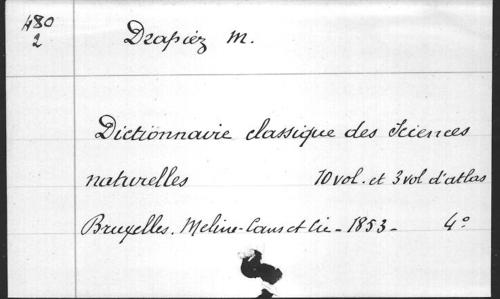 480
2
Drapiez M.
Dictionnaire classique des Sciences
naturelles 10 vol. et 3 vol d'atlas
Bruxelles. Meline-Cans et Cie - 1853 - 4°